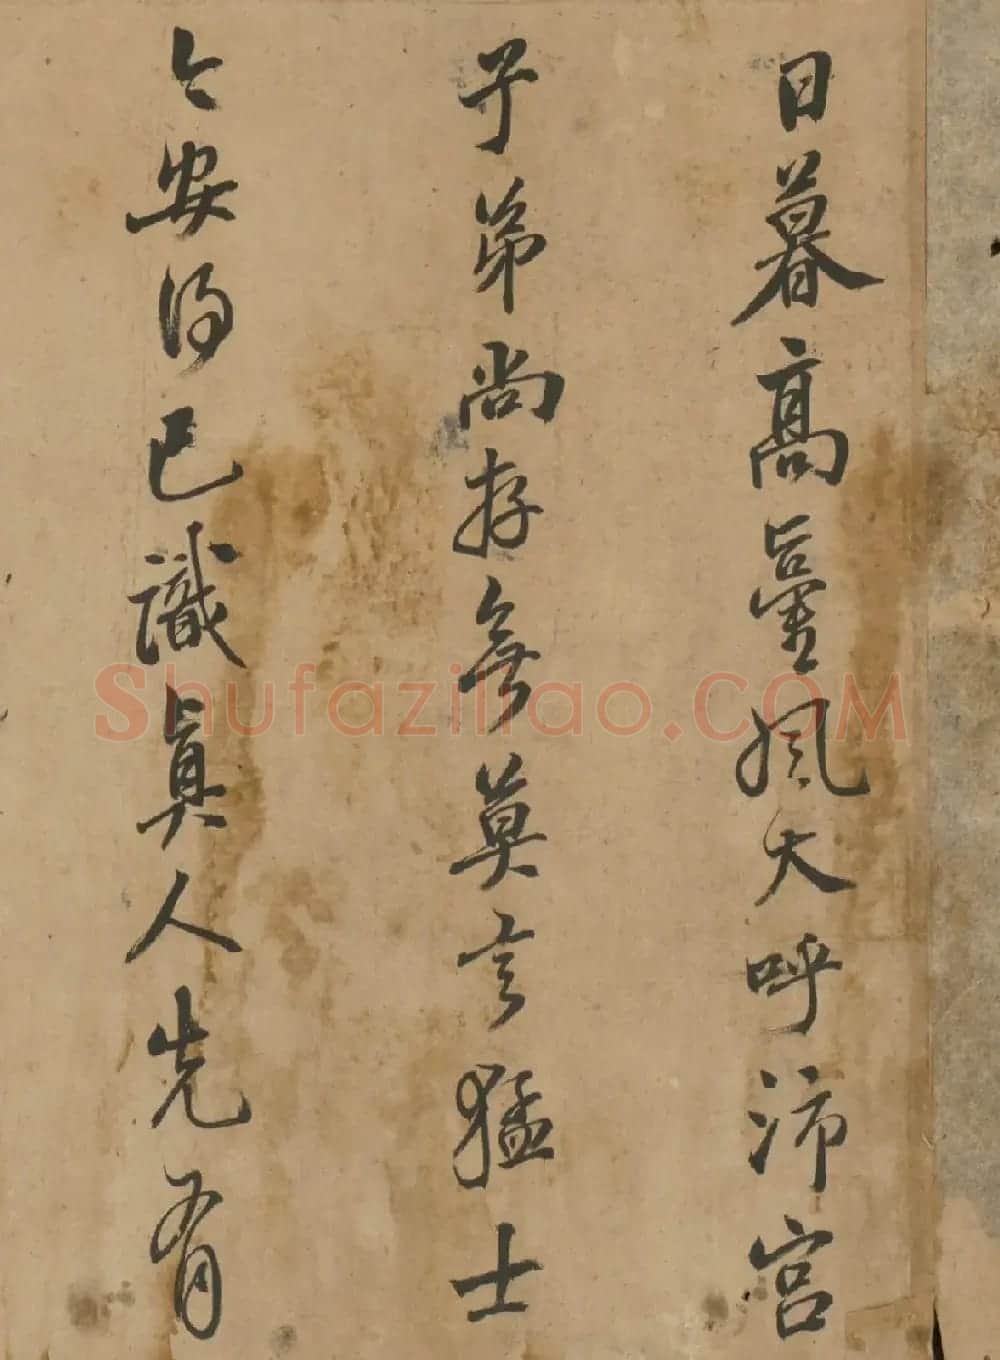 日暮高臺風大呼沛宮
子弟尚存無莫言猛士
今安得已識眞人先有
Shufaziliao.COM